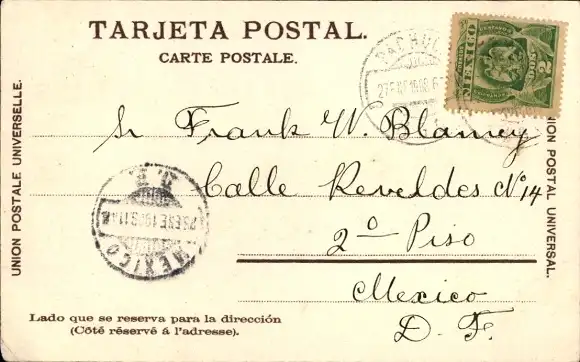 TARJETA POSTAL.
CARTE POSTALE.
UNION POSTALE UNIVERSELLE.
UNION POSTAL UNIVERSAL.
PACHUCA
MEXICO
Sr Frank W. Blamey
Calle Reveldes No 14
2o Piso
Mexico
D. F.
MEXICO
Lado que se reserva para la dirección
(Côté réservé á l'adresse).